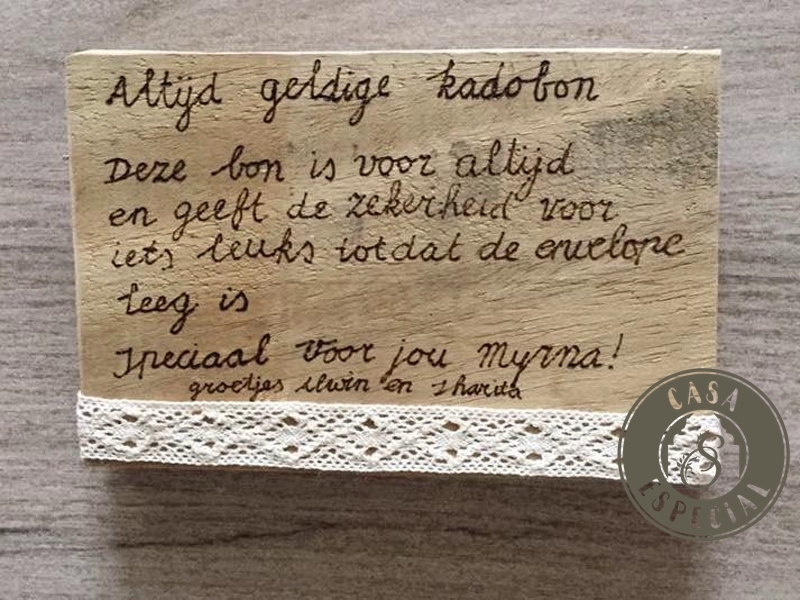 Altijd geldige kadobon
Deze bon is voor altijd
en geeft de zekerheid voor
iets leuks totdat de envelope
leeg is
Speciaal voor jou Myrna!
groetjes Elwin en Sharita
CASA
S
ESPECIAL